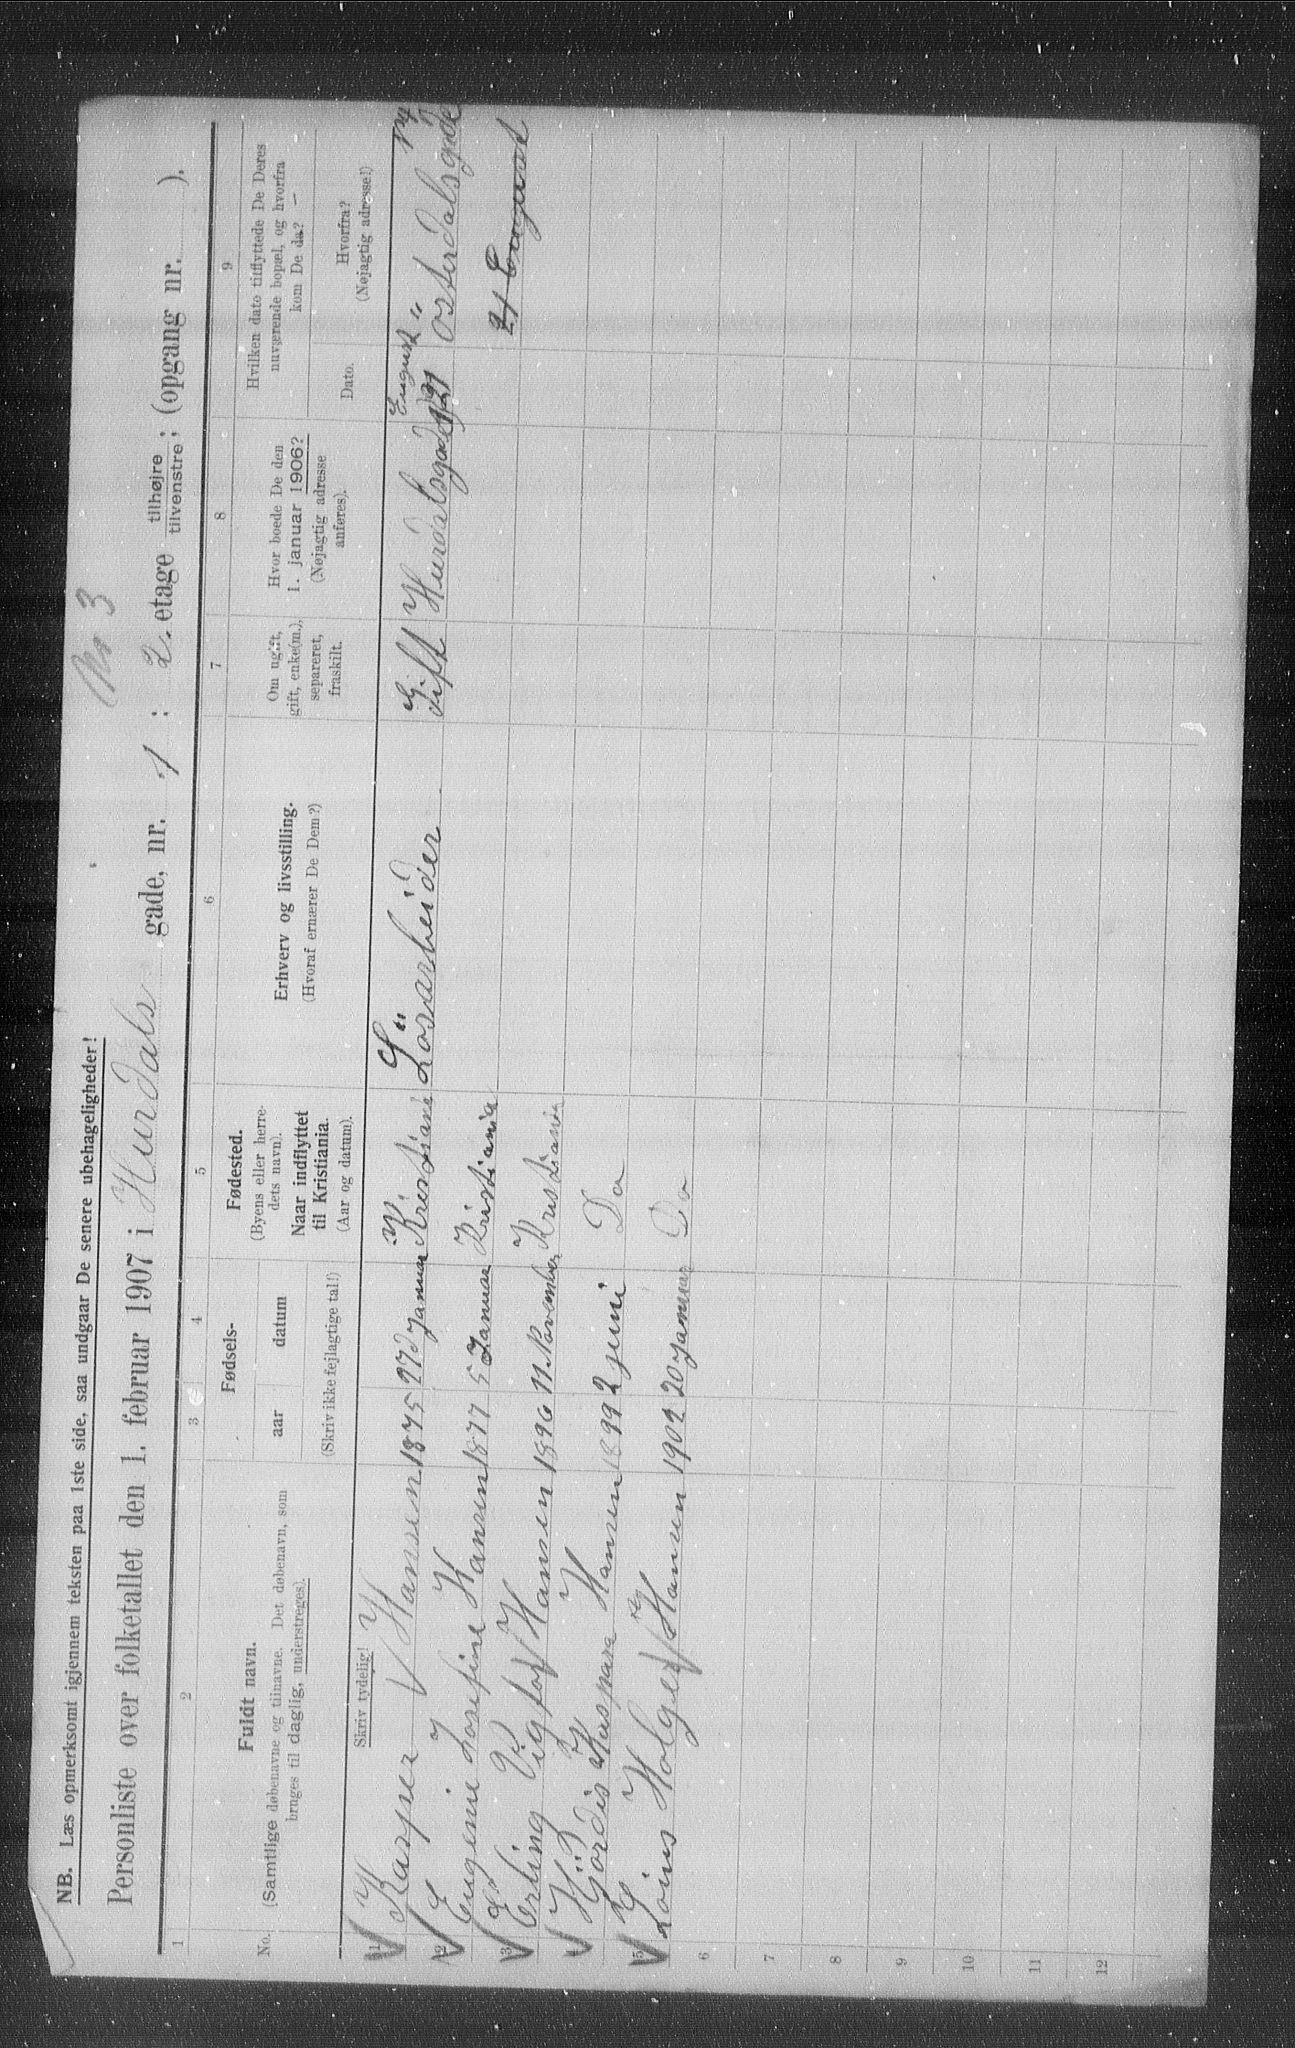 NB. Læs opmerksomt igjennem teksten paa 1ste side, saa undgaar De senere ubehageligheder!
No 3
Personliste over folketallet den 1. februar 1907 i Hurdals gade, nr. 1 : 2. etage tilhøjre tilvenstre; (opgang nr. ).
1 2 3 4 5 6 7 8 9
No.
Fuldt navn.
(Samtlige døbenavne og tilnavne. Det døbenavn, som
bruges til daglig, understreges).
Skriv tydelig!
Fødsels-
aar datum
(Skriv ikke fejlagtige tal!)
Fødested.
(Byens eller herre-
dets navn).
Naar indflyttet
til Kristiania.
(Aar og datum).
Erhverv og livsstilling.
(Hvoraf ernærer De Dem?)
Om ugift,
gift, enke(m.),
separeret,
fraskilt.
Hvor boede De den
1. januar 1906?
(Nøjagtig adresse
anføres).
Hvilken dato tilflyttede De Deres
nuværende bopæl, og hvorfra
kom De da? —
Dato.
Hvorfra?
(Nøjagtig adresse!)
1 Kasper Hansen 1875 27 Januar Kristiania Lösarbeider Gift Hurdalsgade August 21 Østerdalsgade
2 Eugenie Josefine Hansen 1877 5 Januar Kristiania 21 August
3 Erling Vigfor Hansen 1896 11. November Kristiania
4 Hjördis Kaspara Hansen 1899 2 juni Do
5 Loius Holger Hansen 1902 20 Januar Do
6
7
8
9
10
11
12